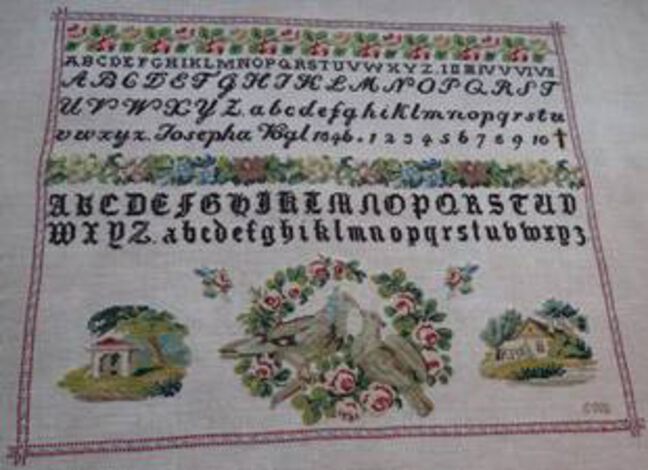 ABCDEFGHIKLMNOPQRSTUVWXYZ. I II III IV V VI VII
ABCDEFGHIKLMNOPQRST
UVWXYZ. abcdefghiklmnopqrstu
vwxyz. Josepha Vogl 1846. 1 2 3 4 5 6 7 8 9 10
ABCDEFGHIKLMNOPQRSTUV
WXYZ. abcdefghiklmnopqrstuvwxyz